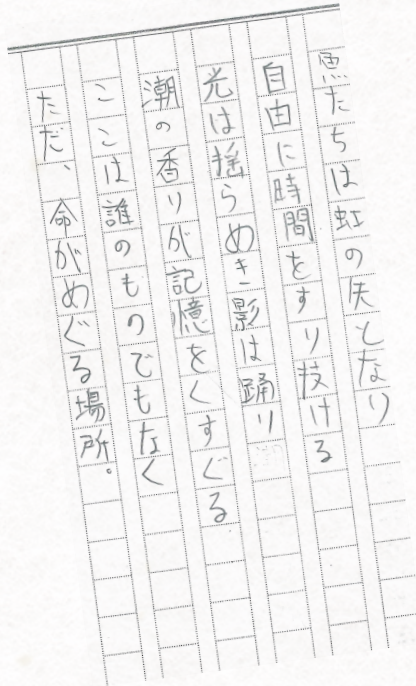 魚たちは虹の矢となり
自由に時間をすり抜ける
光は揺らめき影は踊り
潮の香りが記憶をくすぐる
ここは誰のものでもなく
ただ、命がめぐる場所。